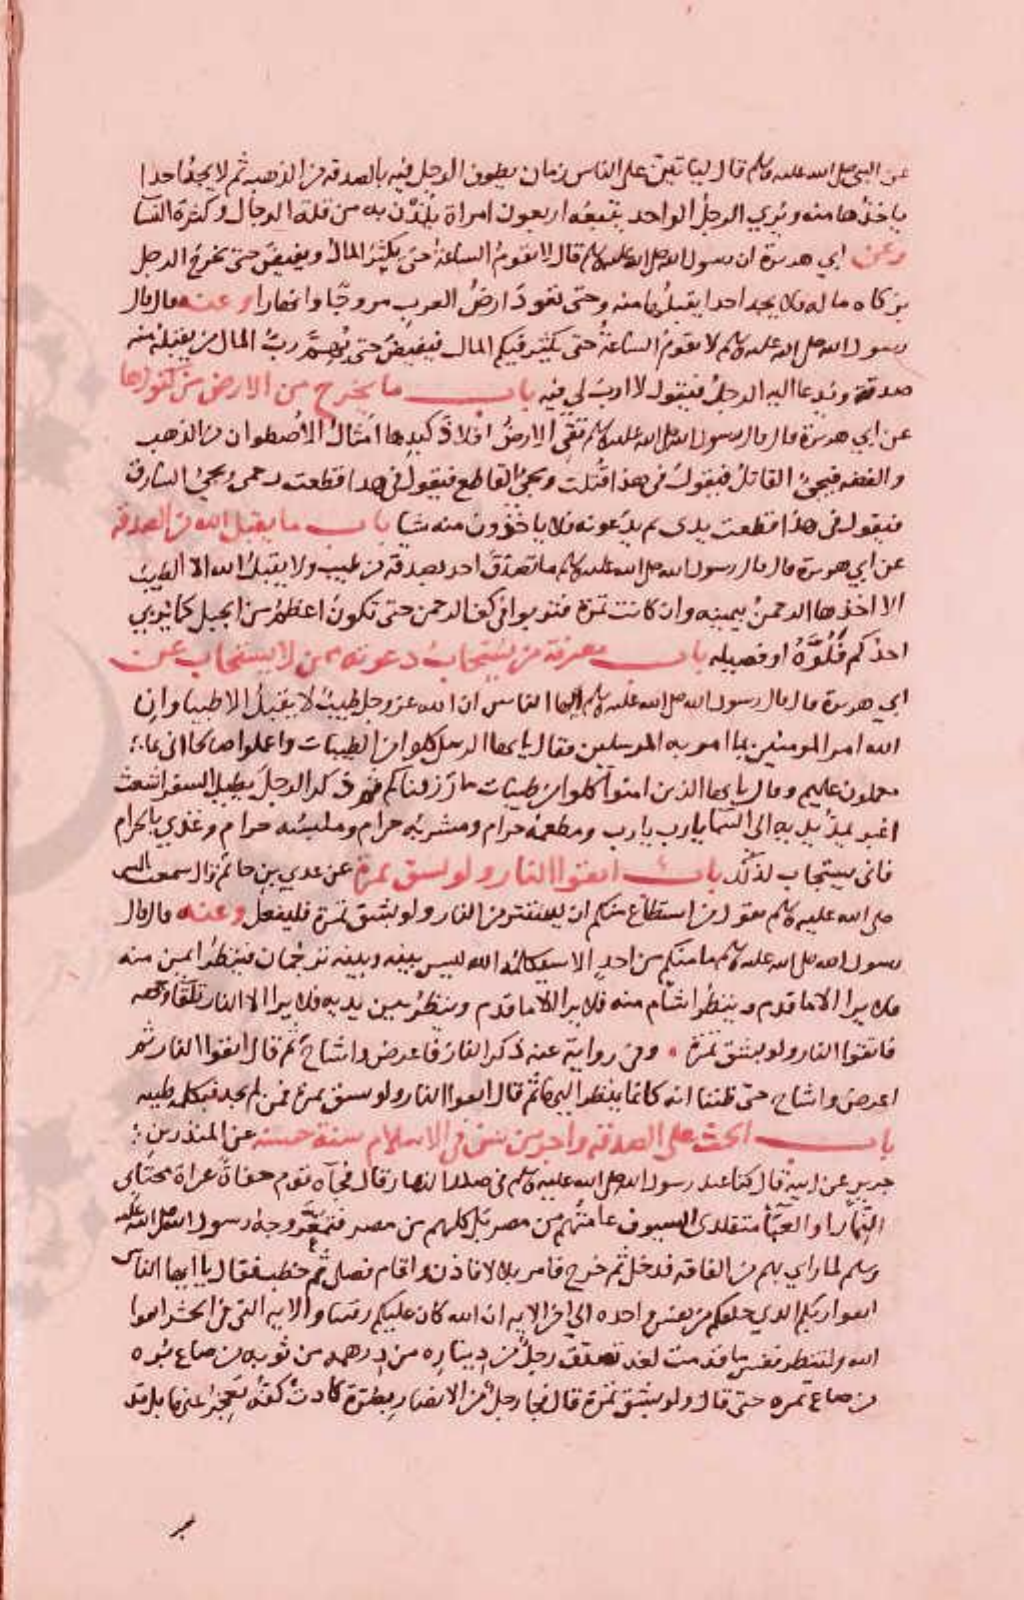 عن النبي صلى الله عليه وسلم قال لياتين على الناس زمان يطوف الرجل فيه بالصدقة من الذهب ثم لا يجد احدا
ياخذها منه ويرى الرجل الواحد يتبعه اربعون امراة يلذن به من قلة الرجال وكثرة النسا
وعن ابي هريرة ان رسول الله صلى الله عليه وسلم قال لا تقوم الساعة حتى يكثر المال ويفيض حتى يخرج الرجل
بزكاه ماله فلا يجد احدا يقبلها منه وحتى تعود ارض العرب مروجا وانهارا وعنه قال قال
رسول الله صلى الله عليه وسلم لا تقوم الساعة حتى يكثر فيكم المال فيفيض حتى يهم رب المال من يقبله منه
صدقة ويدعا اليه الرجل فيقول لا ارب لي فيه باب ما يخرج من الارض من كنوزها
عن ابي هريرة قال قال رسول الله صلى الله عليه وسلم تقي الارض افلاذ كبدها امثال الاصطوان من الذهب
والفضه فيجئ القاتل فيقول في هذا قتلت ويجئ القاطع فيقول في هذا قطعت رحمي ويجئ السارق
فيقول في هذا قطعت يدى ثم يدعونه فلا ياخذون منه شيا باب ما يقبل الله من الصدقه
عن ابي هريرة قال قال رسول الله صلى الله عليه وسلم ما تصدق احد بصدقة من طيب ولا يقبل الله الا الطيب
الا اخذها الرحمن بيمينه وان كانت تمرة فتربوا في كف الرحمن حتى تكون اعظم من الجبل كما يربي
احدكم فلوه او فصيله باب معرفة من يستجاب دعوته ممن لا يستجاب عن
ابي هريرة قال قال رسول الله صلى الله عليه وسلم ايها الناس ان الله عز وجل طيب لا يقبل الا طيبا وان
الله امر المومنين بما امر به المرسلين فقال يا يها الرسل كلوا من الطيبات واعملوا صالحا اني بما
تعملون عليم وقال يا يها الذين امنوا كلوا من طيبات ما رزقناكم ثم ذكر الرجل يطيل السفر اشعث
اغبر يمد يديه الى السما يا رب يا رب ومطعمه حرام ومشربه حرام وملبسه حرام وغذي بالحرام
فانى يستجاب لذلك باب اتقوا النار ولو بشق تمرة عن عدي بن حاتم قال سمعت النبي
صلى الله عليه وسلم يقول من استطاع منكم ان يستتر من النار ولو بشق تمرة فليفعل وعنه قال قال
رسول الله صلى الله عليه وسلم ما منكم من احد الا سيكلمه الله ليس بينه وبينه ترجمان فينظر ايمن منه
فلا يرا الا ما قدم وينظر اشام منه فلا يرا الا ما قدم وينظر بين يديه فلا يرا الا النار تلقا وجهه
فاتقوا النار ولو بشق تمرة وفي رواية عنه ذكر النار فاعرض واشاح ثم قال اتقوا النار ثم
اعرض واشاح حتى ظننا انه كانما ينظر اليها ثم قال اتقوا النار ولو بشق تمرة فمن لم يجد فبكلمه طيبه
باب الحث على الصدقه واجر من سن في الاسلام سنة حسنه عن المنذر بن
جرير عن ابيه قال كنا عند رسول الله صلى الله عليه وسلم في صدر النهار قال فجآه قوم حفاة عراة مجتابي
النمار او العبآ متقلدي السيوف عامتهم من مضر بل كلهم من مضر فتمعر وجه رسول الله صلى الله عليه
وسلم لما راى بهم من الفاقه فدخل ثم خرج فامر بلالا فاذن واقام فصلى ثم خطب فقال يا ايها الناس
اتقوا ربكم الذي خلقكم من نفس واحده الى اخر الايه ان الله كان عليكم رقيبا والايه التي في الحشر اتقوا
الله ولتنظر نفس ما قدمت لغد تصدق رجل من ديناره من درهمه من ثوبه من صاع بره
من صاع تمره حتى قال ولو بشق تمرة قال فجا رجل من الانصار بصرة كادت كفه تعجز عنها بل قد